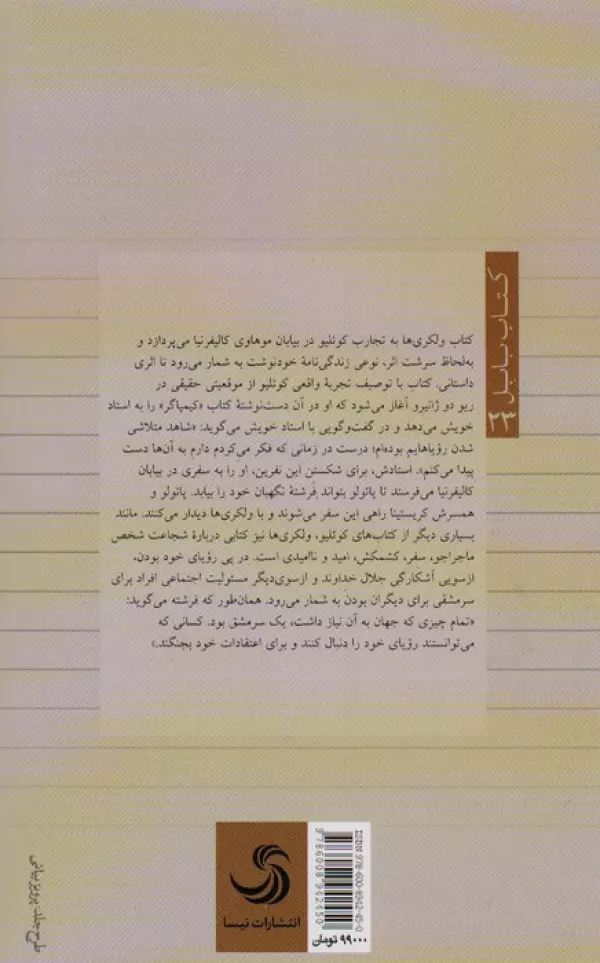 کتاب بابل ۴۴
کتاب ولکری‌ها به تجارب کوئلیو در بیابان موهاوی کالیفرنیا می‌پردازد و
به‌لحاظ سرشت اثر، نوعی زندگی‌نامهٔ خودنوشت به شمار می‌رود تا اثری
داستانی. کتاب با توصیف تجربهٔ واقعی کوئلیو از موقعیتی حقیقی در
ریو دو ژانیرو آغاز می‌شود که او در آن دست‌نوشتهٔ کتاب «کیمیاگر» را به استاد
خویش می‌دهد و در گفت‌وگویی با استاد خویش می‌گوید: «شاهد متلاشی
شدن رؤیاهایم بوده‌ام؛ درست در زمانی که فکر می‌کردم دارم به آن‌ها دست
پیدا می‌کنم». استادش، برای شکستن این نفرین، او را به سفری در بیابان
کالیفرنیا می‌فرستد تا پائولو بتواند فرشتهٔ نگهبان خود را بیابد. پائولو و
همسرش کریستینا راهی این سفر می‌شوند و با ولکری‌ها دیدار می‌کنند. مانند
بسیاری دیگر از کتاب‌های کوئلیو، ولکری‌ها نیز کتابی دربارهٔ شجاعت شخص
ماجراجو، سفر، کشمکش، امید و ناامیدی است. در پی رؤیای خود بودن،
ازسویی آشکارگی جلال خداوند و ازسوی‌دیگر مسئولیت اجتماعی افراد برای
سرمشقی برای دیگران بودن به شمار می‌رود. همان‌طور که فرشته می‌گوید:
«تمام چیزی که جهان به آن نیاز داشت، یک سرمشق بود. کسانی که
می‌توانستند رؤیای خود را دنبال کنند و برای اعتقادات خود بجنگند.»
انتشارات نیسا
ISBN 978-600-8942-45-0
9786008942450
۹۹۰۰۰ تومان
طرح جلد: پرویز بیانی